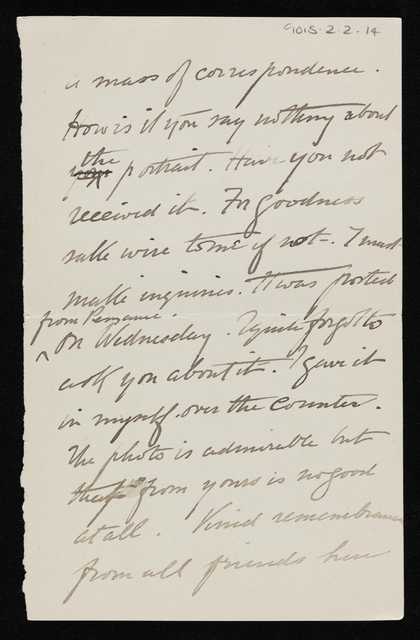 9015-2-2-14
a mass of correspondence.
How is it you say nothing about
the portrait. Have you not
received it. For goodness
sake wire to me if not. I must
make inquiries. It was posted
from Penzance.
On Wednesday. I quite forgot to
ask you about it. I gave it
in myself over the counter.
The photo is admirable but
that from yours is no good
at all. Kind remembrances
from all friends here